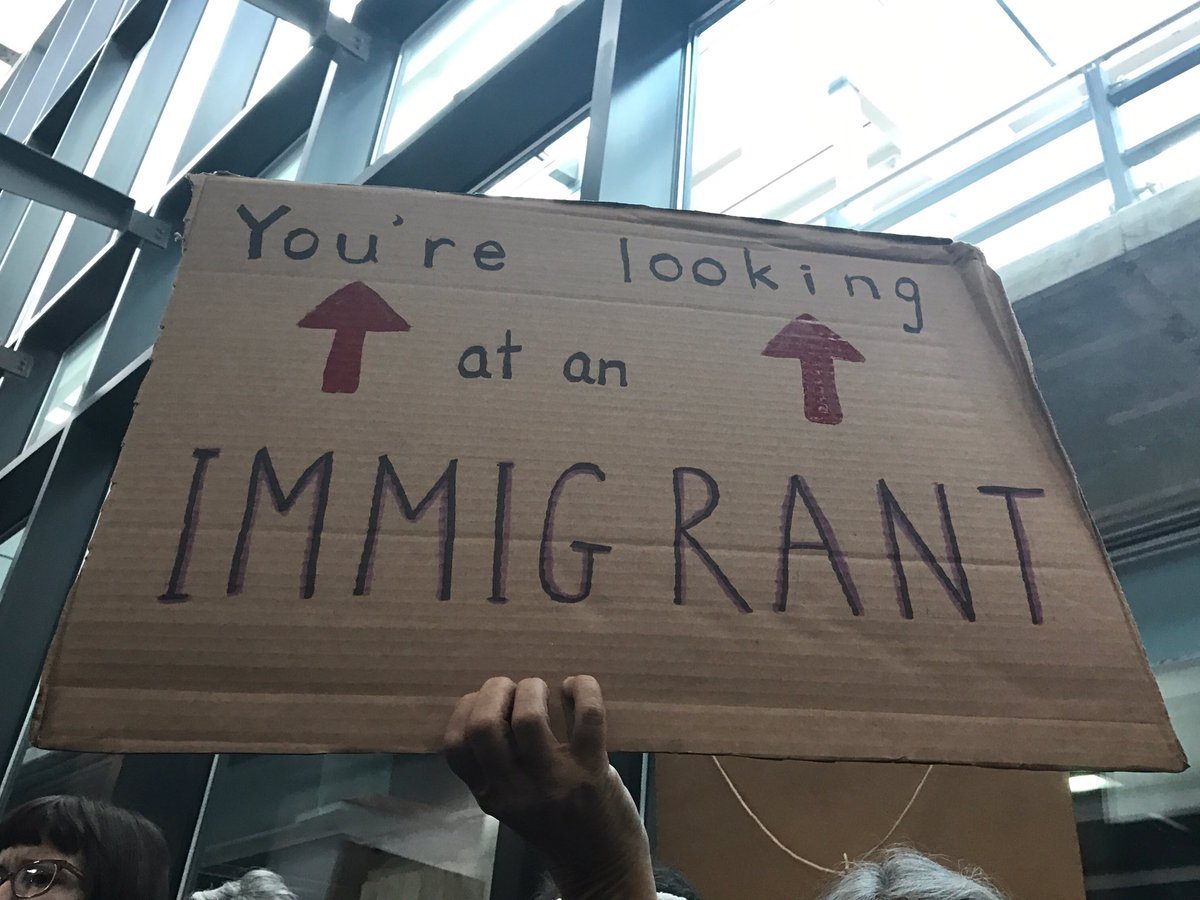 You're looking
at an
IMMIGRANT